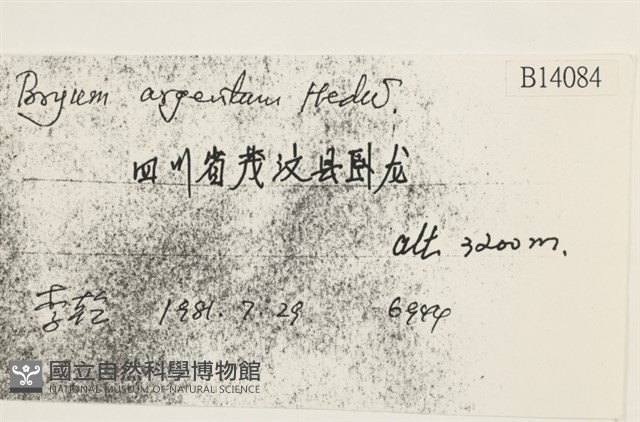 B14084
Bryum argenteum Hedw.
四川省茂汶县卧龙
alt. 3200m.
李乾 1981.7.29 6944
國立自然科學博物館
NATIONAL MUSEUM OF NATURAL SCIENCE